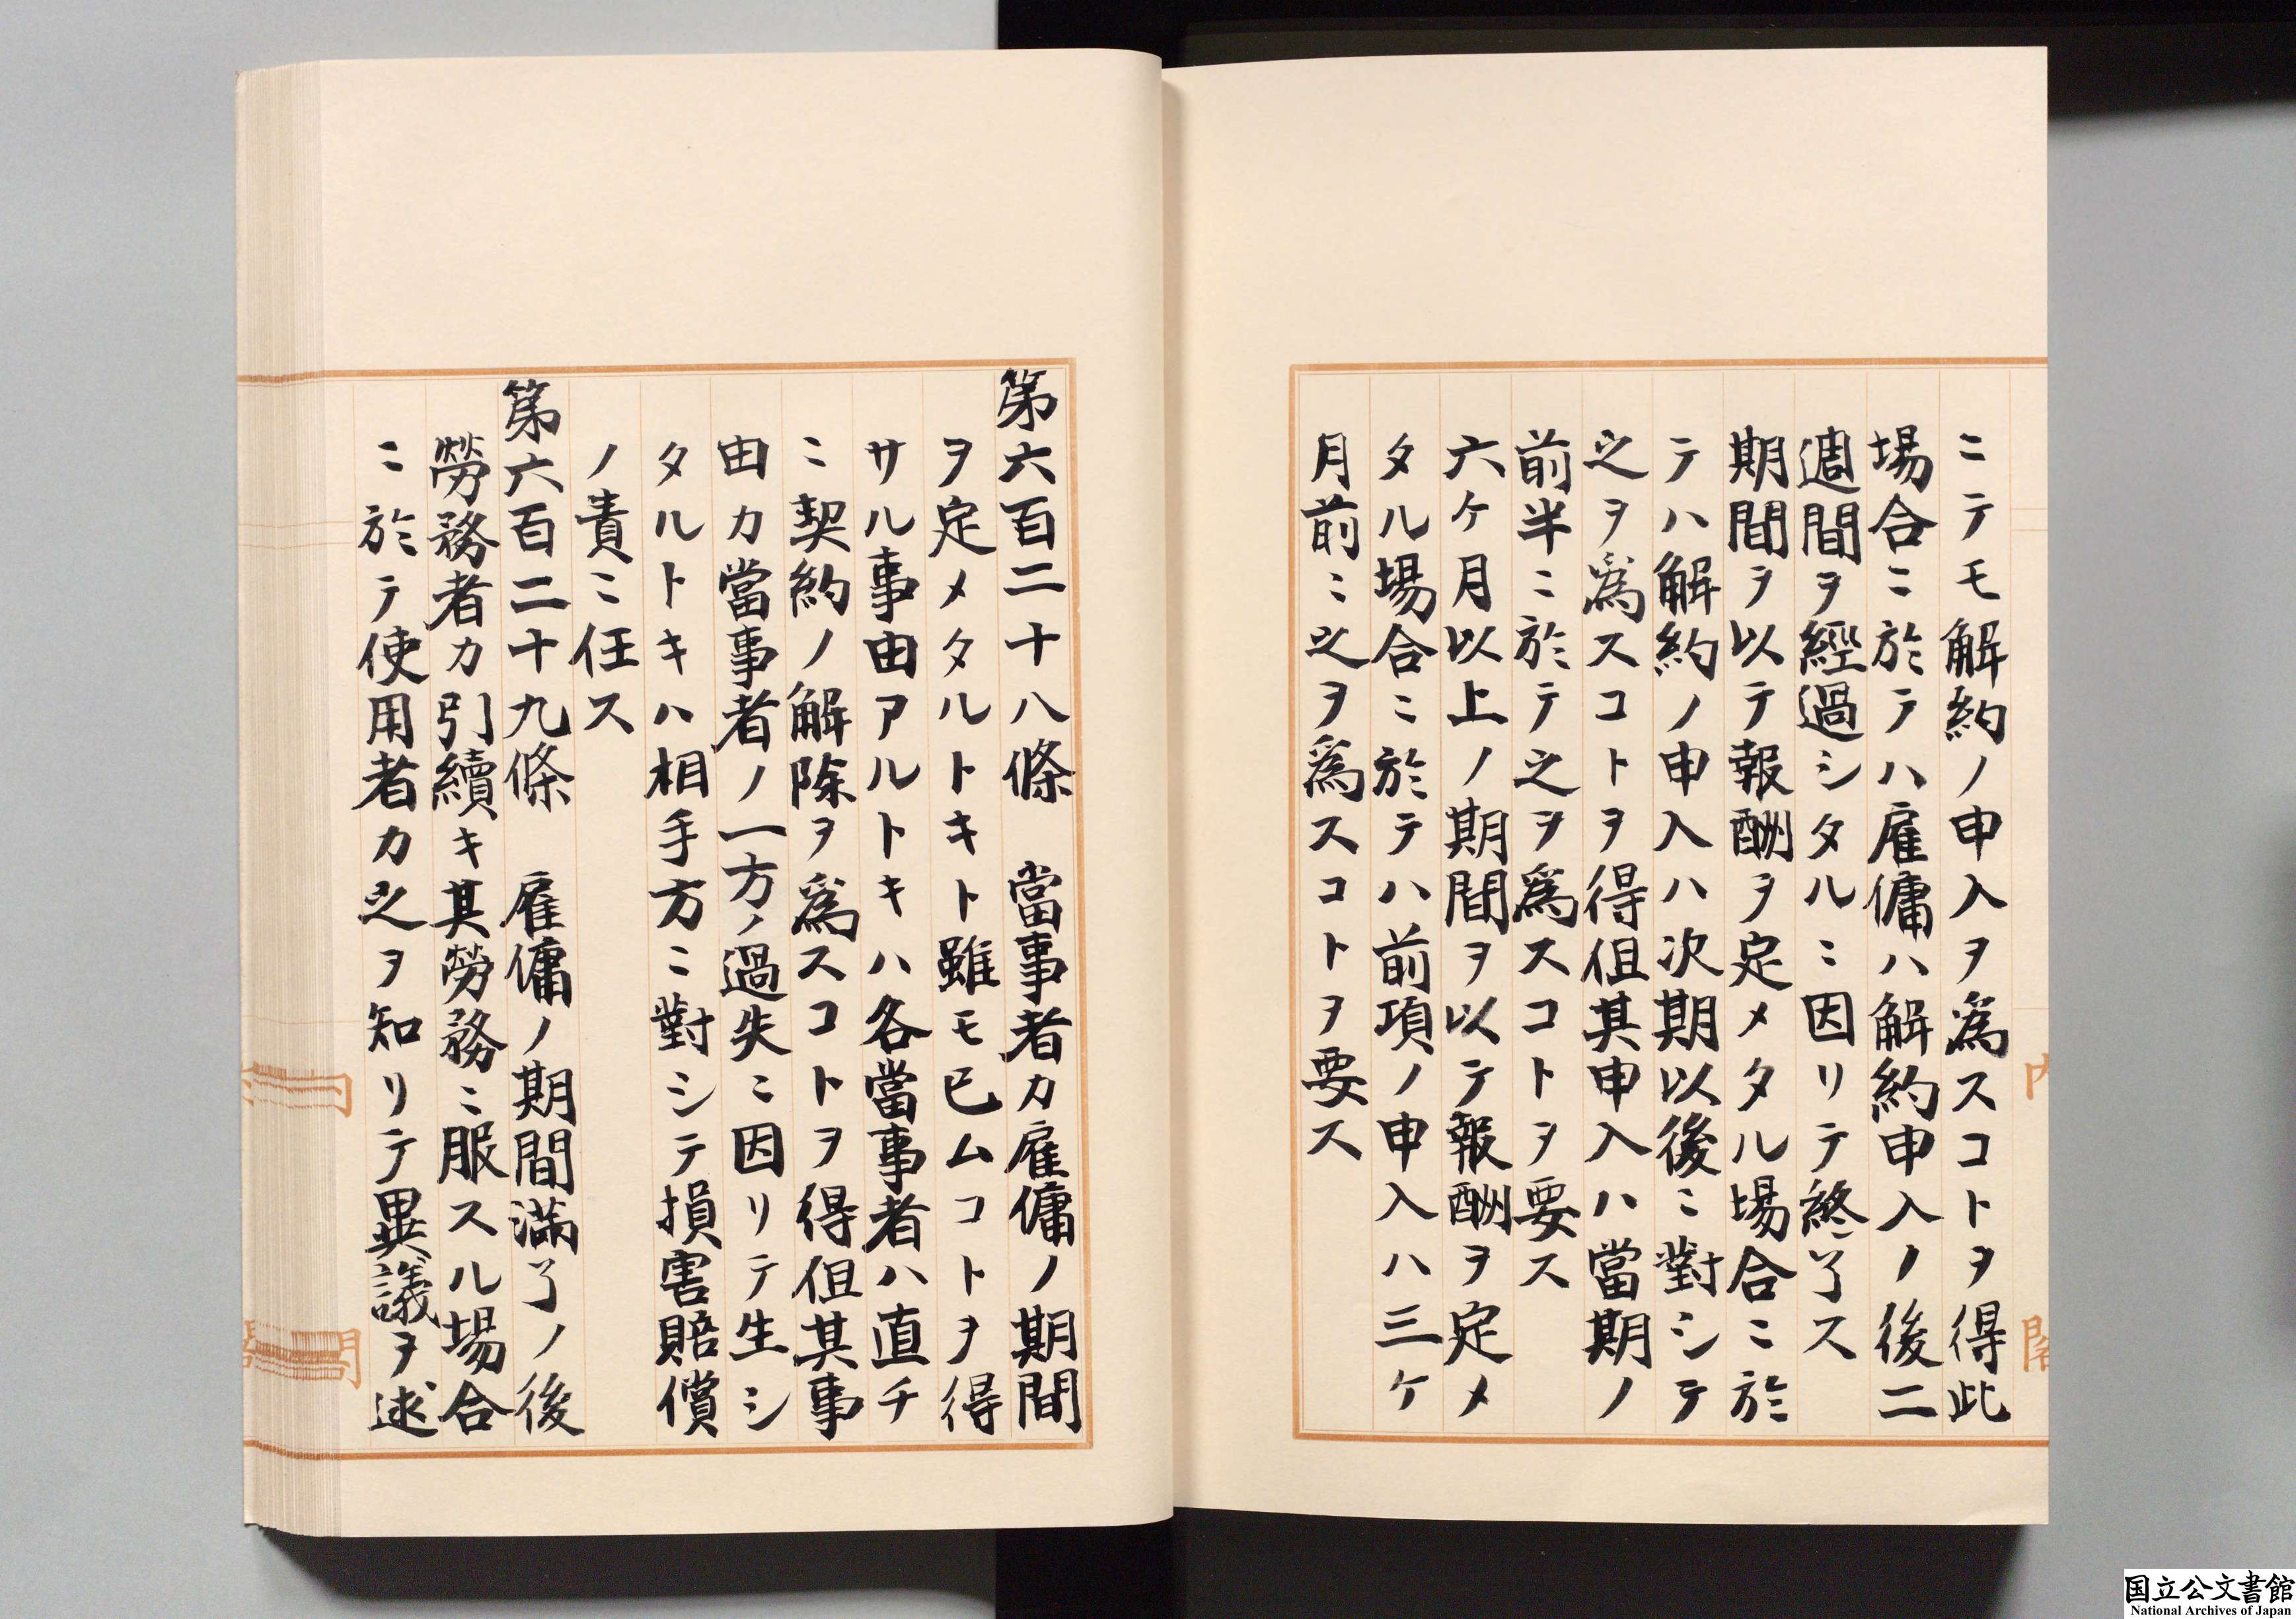 ニテモ解約ノ申入ヲ爲スコトヲ得此
場合ニ於テハ雇傭ハ解約申入ノ後二
週間ヲ經過シタルニ因リテ終了ス
期間ヲ以テ報酬ヲ定メタル場合ニ於
テハ解約ノ申入ハ次期以後ニ對シテ
之ヲ爲スコトヲ得但其申入ハ當期ノ
前半ニ於テ之ヲ爲スコトヲ要ス
六ケ月以上ノ期間ヲ以テ報酬ヲ定メ
タル場合ニ於テハ前項ノ申入ハ三ケ
月前ニ之ヲ爲スコトヲ要ス
第六百二十八條　當事者カ雇傭ノ期間
ヲ定メタルトキト雖モ已ムコトヲ得
サル事由アルトキハ各當事者ハ直チ
ニ契約ノ解除ヲ爲スコトヲ得但其事
由カ當事者ノ一方ノ過失ニ因リテ生シ
タルトキハ相手方ニ對シテ損害賠償
ノ責ニ任ス
第六百二十九條　雇傭ノ期間滿了ノ後
勞務者カ引續キ其勞務ニ服スル場合
ニ於テ使用者カ之ヲ知リテ異議ヲ述
国立公文書館
National Archives of Japan